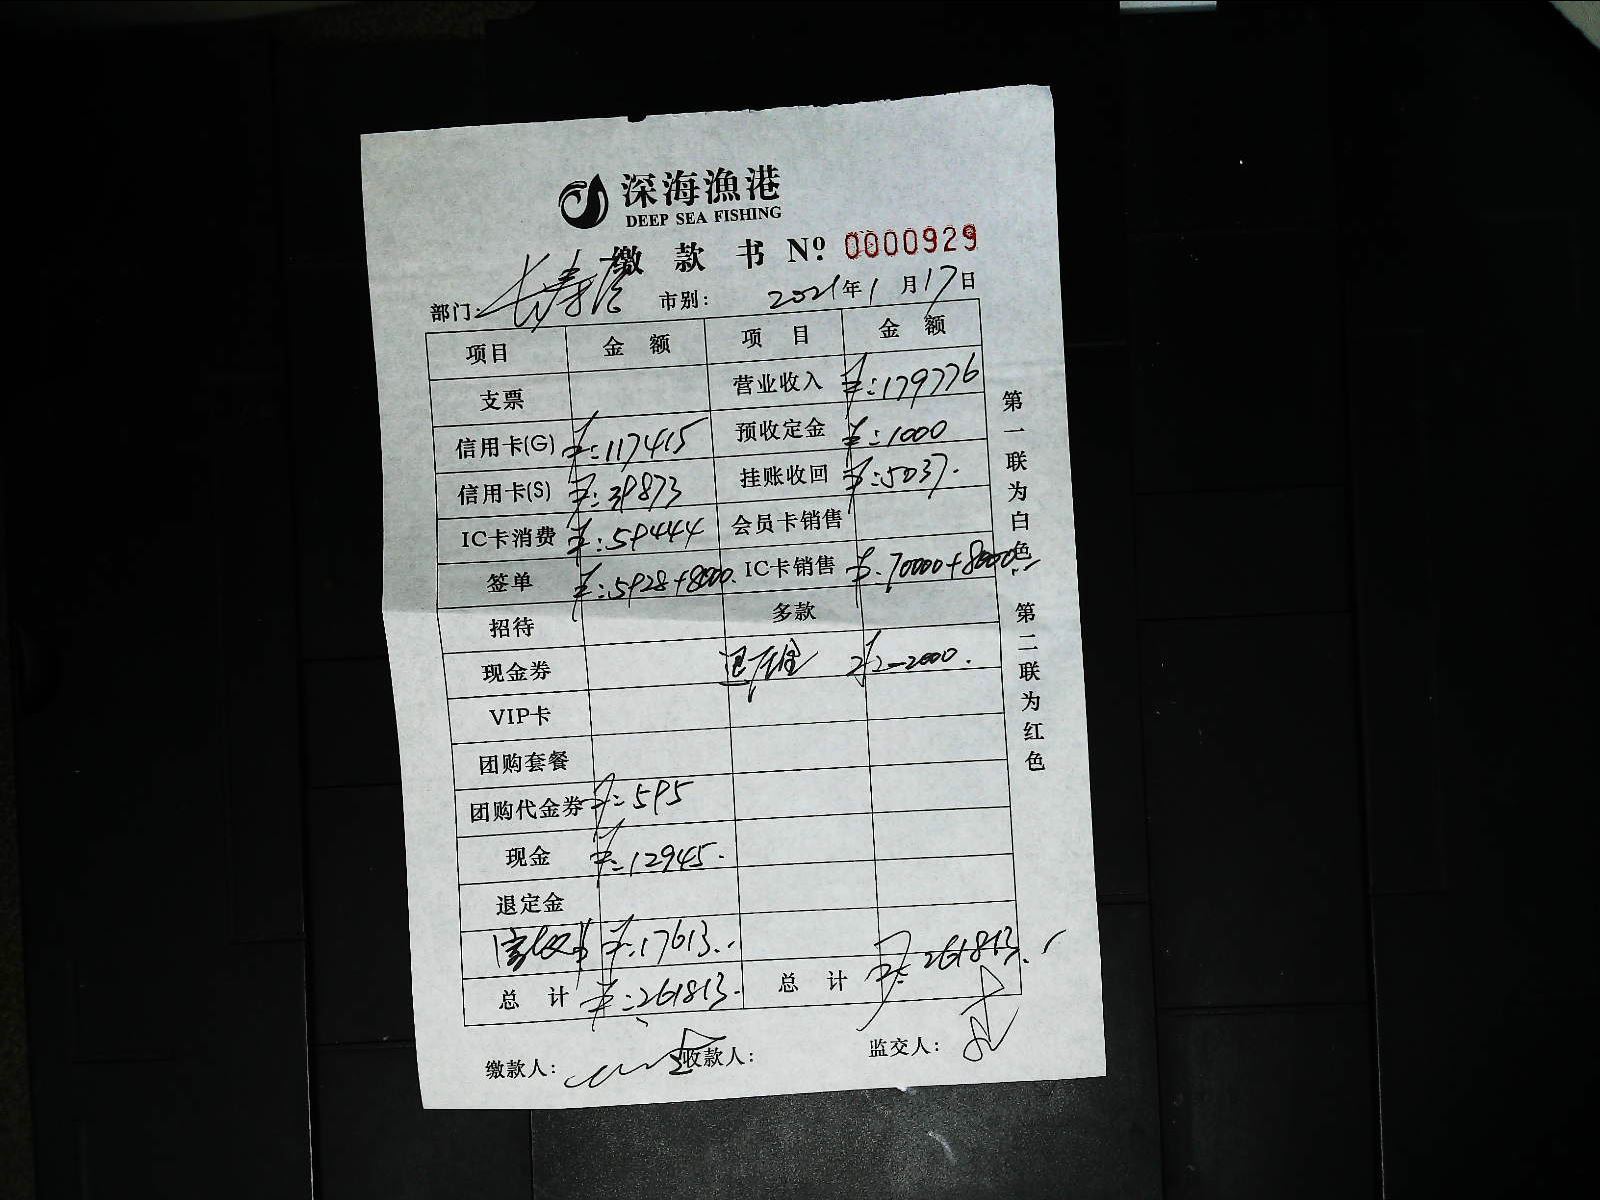 深海渔港
DEEP SEA FISHING
缴款书 Nº: 0000929
部门: 长寿 市别: 2021年1月17日
项目 金额 项目 金额
支票 营业收入 ¥:179776
信用卡(G) ¥:117415 预收定金 ¥:1000
信用卡(S) ¥:39873 挂账收回 ¥:5037.
IC卡消费 ¥:59444 会员卡销售
签单 ¥:5928+8000. IC卡销售 ¥:70000+8000
招待 多款
现金券 退定金 ¥:-2000.
VIP卡
团购套餐
团购代金券 ¥:595
现金 ¥:12945.
退定金
¥:17613.
总计 ¥:261813. 总计 ¥:261813.
缴款人: 收款人: 监交人:
第一联为白色 第二联为红色